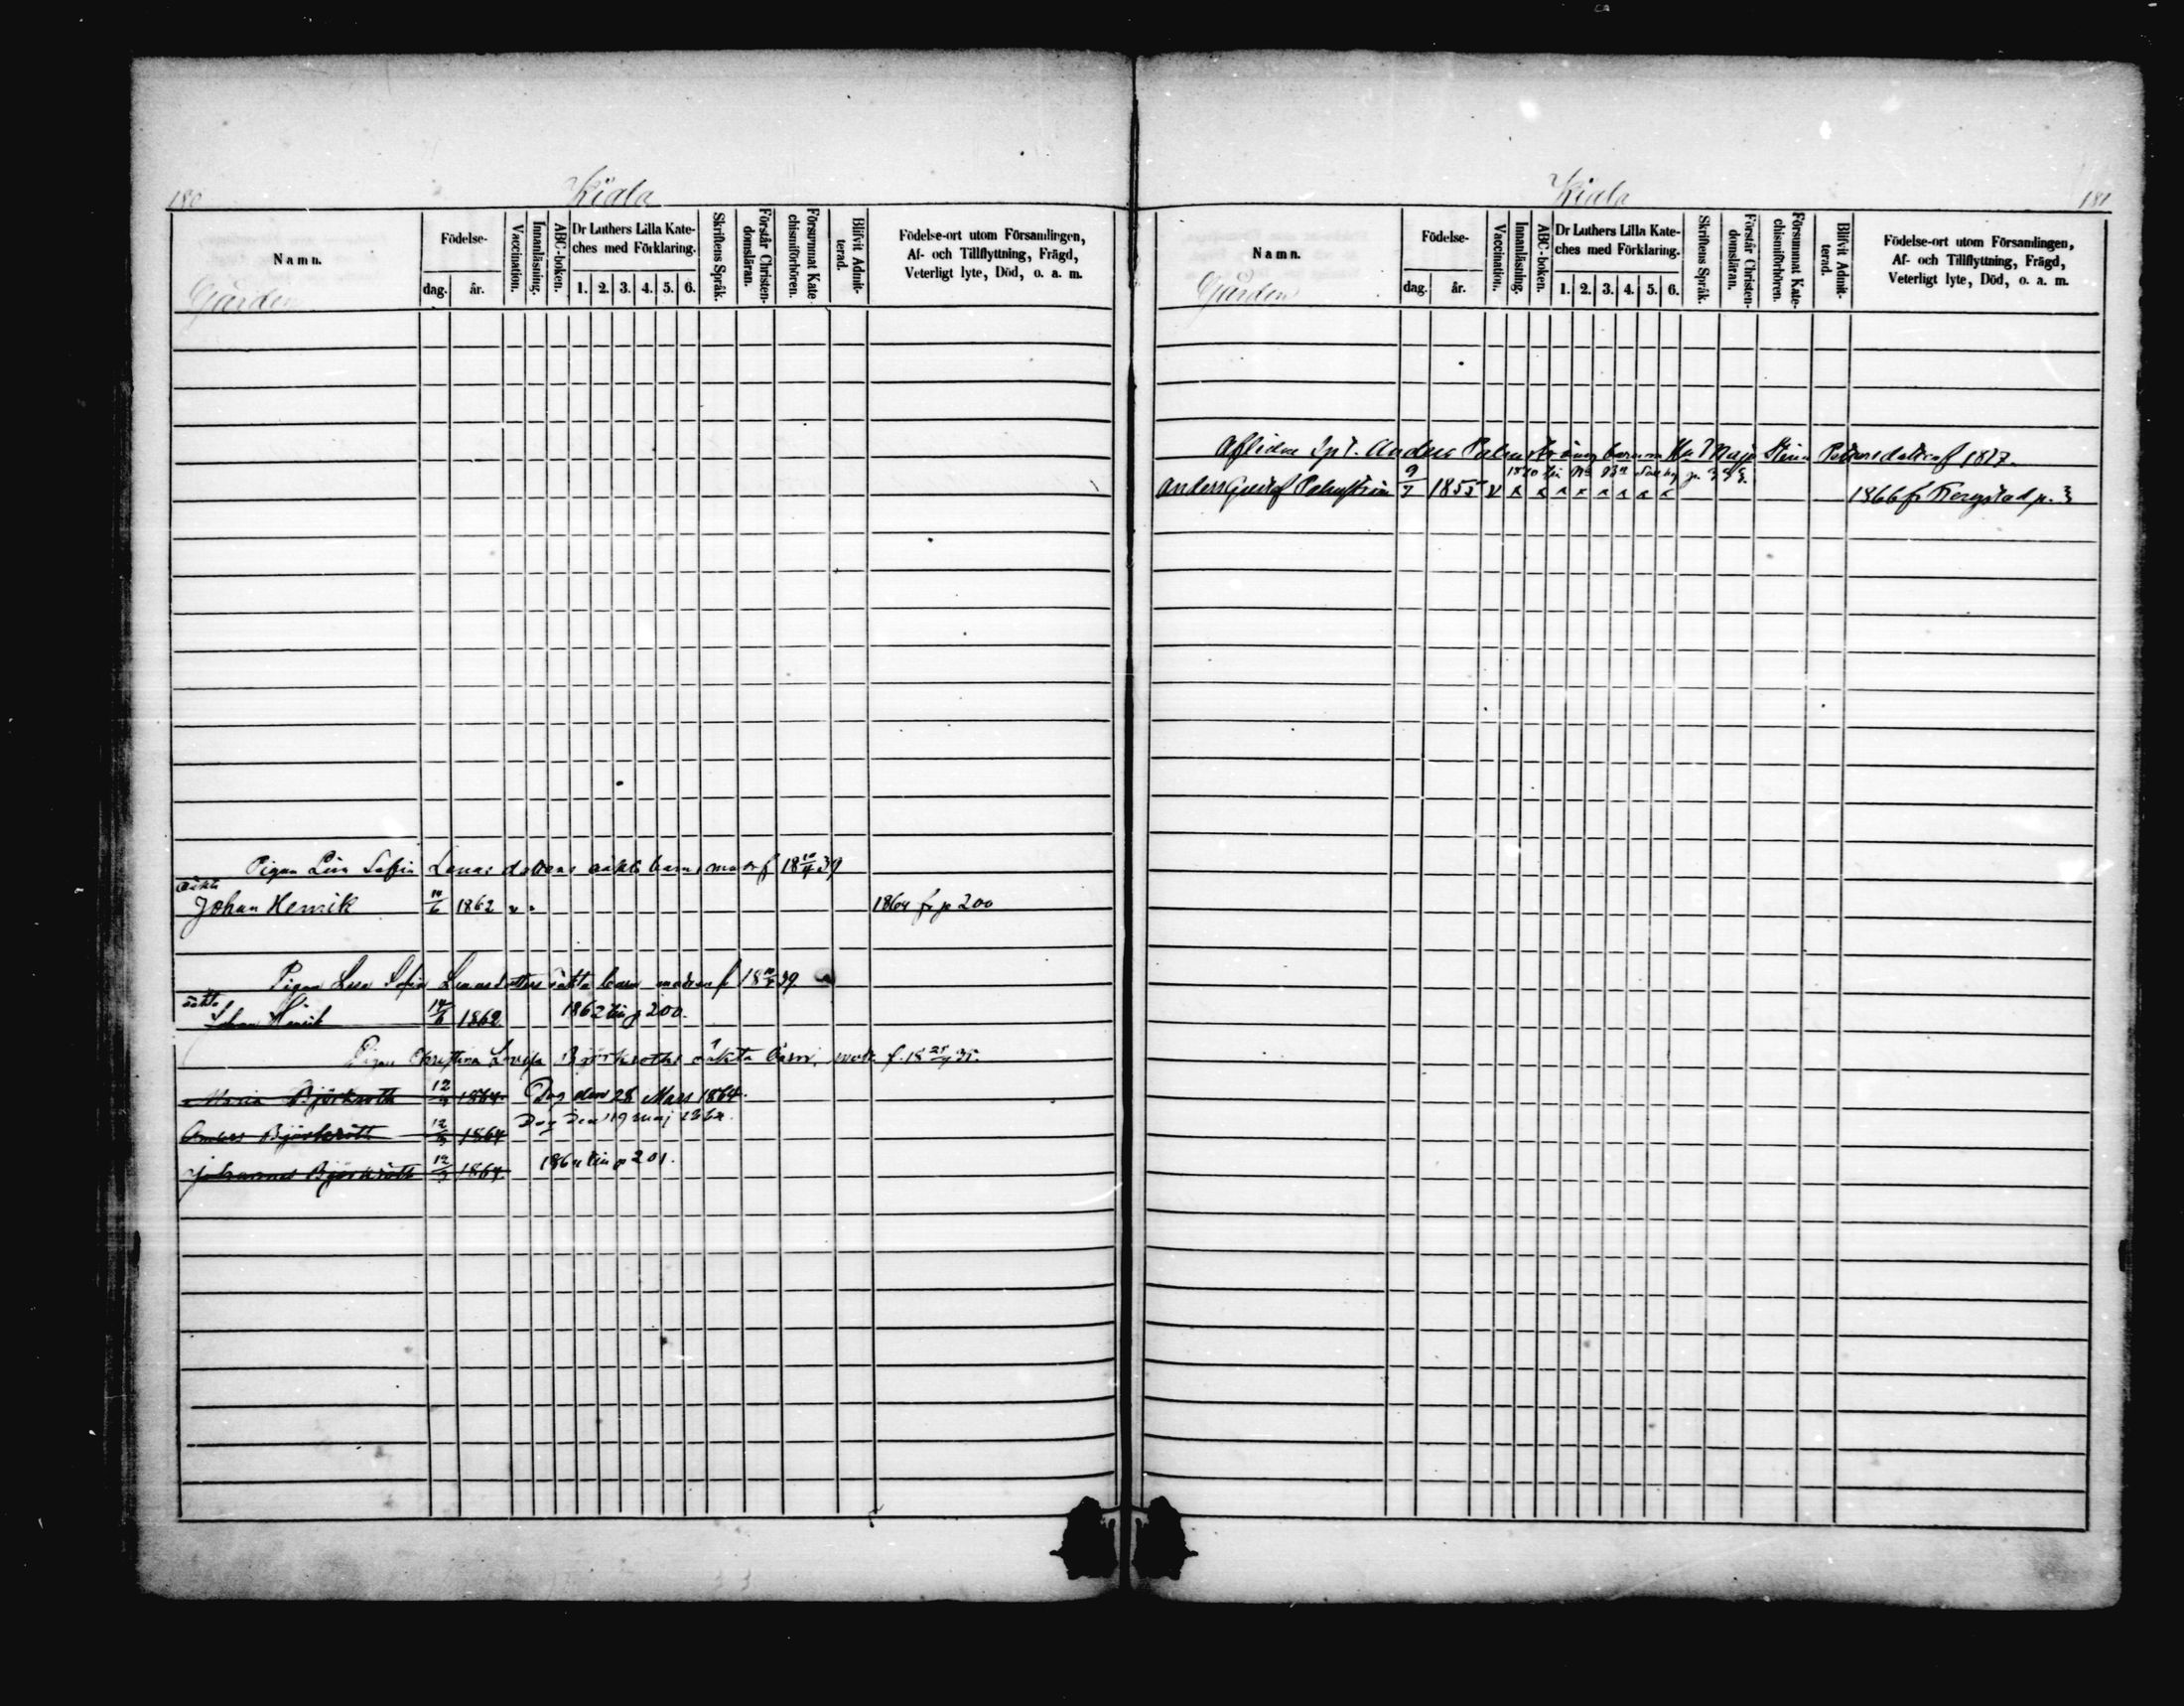 180
Kiala
Namn.
Gården
Födelse-
dag.
år.
Vaccination.
Innanläsning.
ABC-boken.
Dr Luthers Lilla Kate-
ches med Förklaring.
1. 2. 3. 4. 5. 6.
Skriftens Språk.
Förstår Christen-
domsläran.
Försummat Kate-
chismiförhören.
Blifvit Admit-
terad.
Födelse-ort utom Församlingen,
Af- och Tillflyttning, Frägd,
Veterligt lyte, Död, o. a. m.
Pigan Lisa Sofia Lenas dotters oäkta barn, modr f 18 10/4 39
oäkta
Johan Henrik 14/6 1862 v 1864 fr p 200
Pigan Lisa Sofia Lenasdotters oäkta barn modren f 18 39
oäkta
Johan Henrik 14/6 1862 1862 till p 200.
Pigan Christina Lovisa Björkroths oäkta barn, f. 18 35.
Maria Björkroth 12/3 1864 Dog den 28 Mars 1864.
Anders Björkroth 12/3 1864 Dog den 19 maj 1864.
Johannes Björkroth 12/3 1864 1864 till p 201.
Kiala
181
Namn.
Gården
Födelse-
dag.
år.
Vaccination.
Innanläsning.
ABC-boken.
Dr Luthers Lilla Kate-
ches med Förklaring.
1. 2. 3. 4. 5. 6.
Skriftens Språk.
Förstår Christen-
domsläran.
Försummat Kate-
chismiförhören.
Blifvit Admit-
terad.
Födelse-ort utom Församlingen,
Af- och Tillflyttning, Frägd,
Veterligt lyte, Död, o. a. m.
Aflidne Anders Palmströms barn m. Maja Stina Petersdotter f 1817.
1870 till p. 333.
Anders Gustaf Palmström 9/7 1855 v 1866 fr p. 3